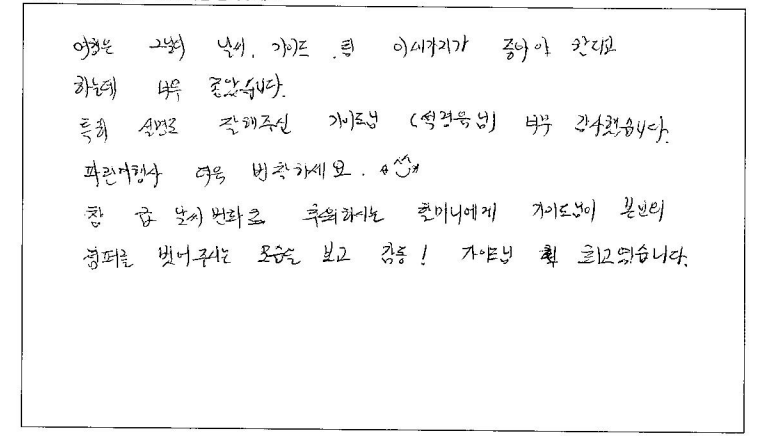 여행은 그날의 날씨, 가이드, 팀 이 세가지가 좋아야 한다고
하는데 너무 좋았습니다.
특히 설명도 잘해주신 가이드님 (석경욱님) 너무 감사했습니다.
파란여행사 더욱 번창하세요.
참 급 날씨변화로 추워하시는 할머니에게 가이드님이 본인의
점퍼를 벗어주시는 모습을 보고 감동! 가이드님 최고였습니다.